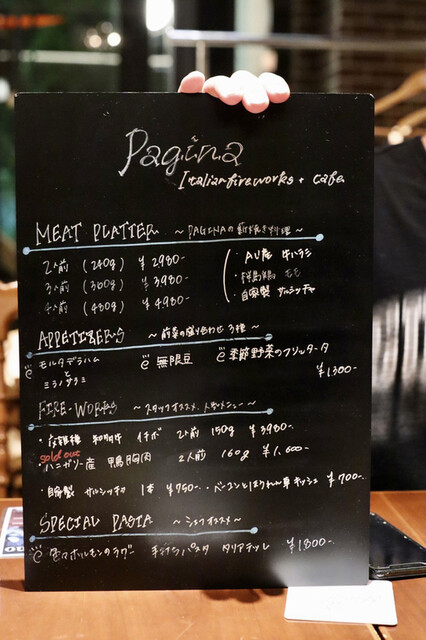 Pagina
Italianfireworks + cafe
MEAT PLATTER ～PAGINAの薪焼き料理～
2人前 (240g) ¥2980-
3人前 (360g) ¥3980-
4人前 (480g) ¥4980-
・AU産 牛ハラミ
・群馬鶏 モモ
・自家製 サルシッチャ
APPETIZER'S ～前菜の盛り合わせ 3種～
モルタデラハム
と
ミラノサラミ
無限豆
季節野菜のフリッタータ
¥1300-
FIRE-WORKS ～スタッフオススメ、人気メニュー～
・ 和牛 イチボ 2人前 150g ¥3980-
sold out
・ハンガリー産 鴨胸肉 2人前 160g ¥1,600-
・自家製 サルシッチャ 1本 ¥750-
・ベーコンとほうれん草 キッシュ ¥700-
SPECIAL PASTA ～シェフオススメ～
ホルモンのラグー 手打ちパスタ タリアテッレ ¥1800-